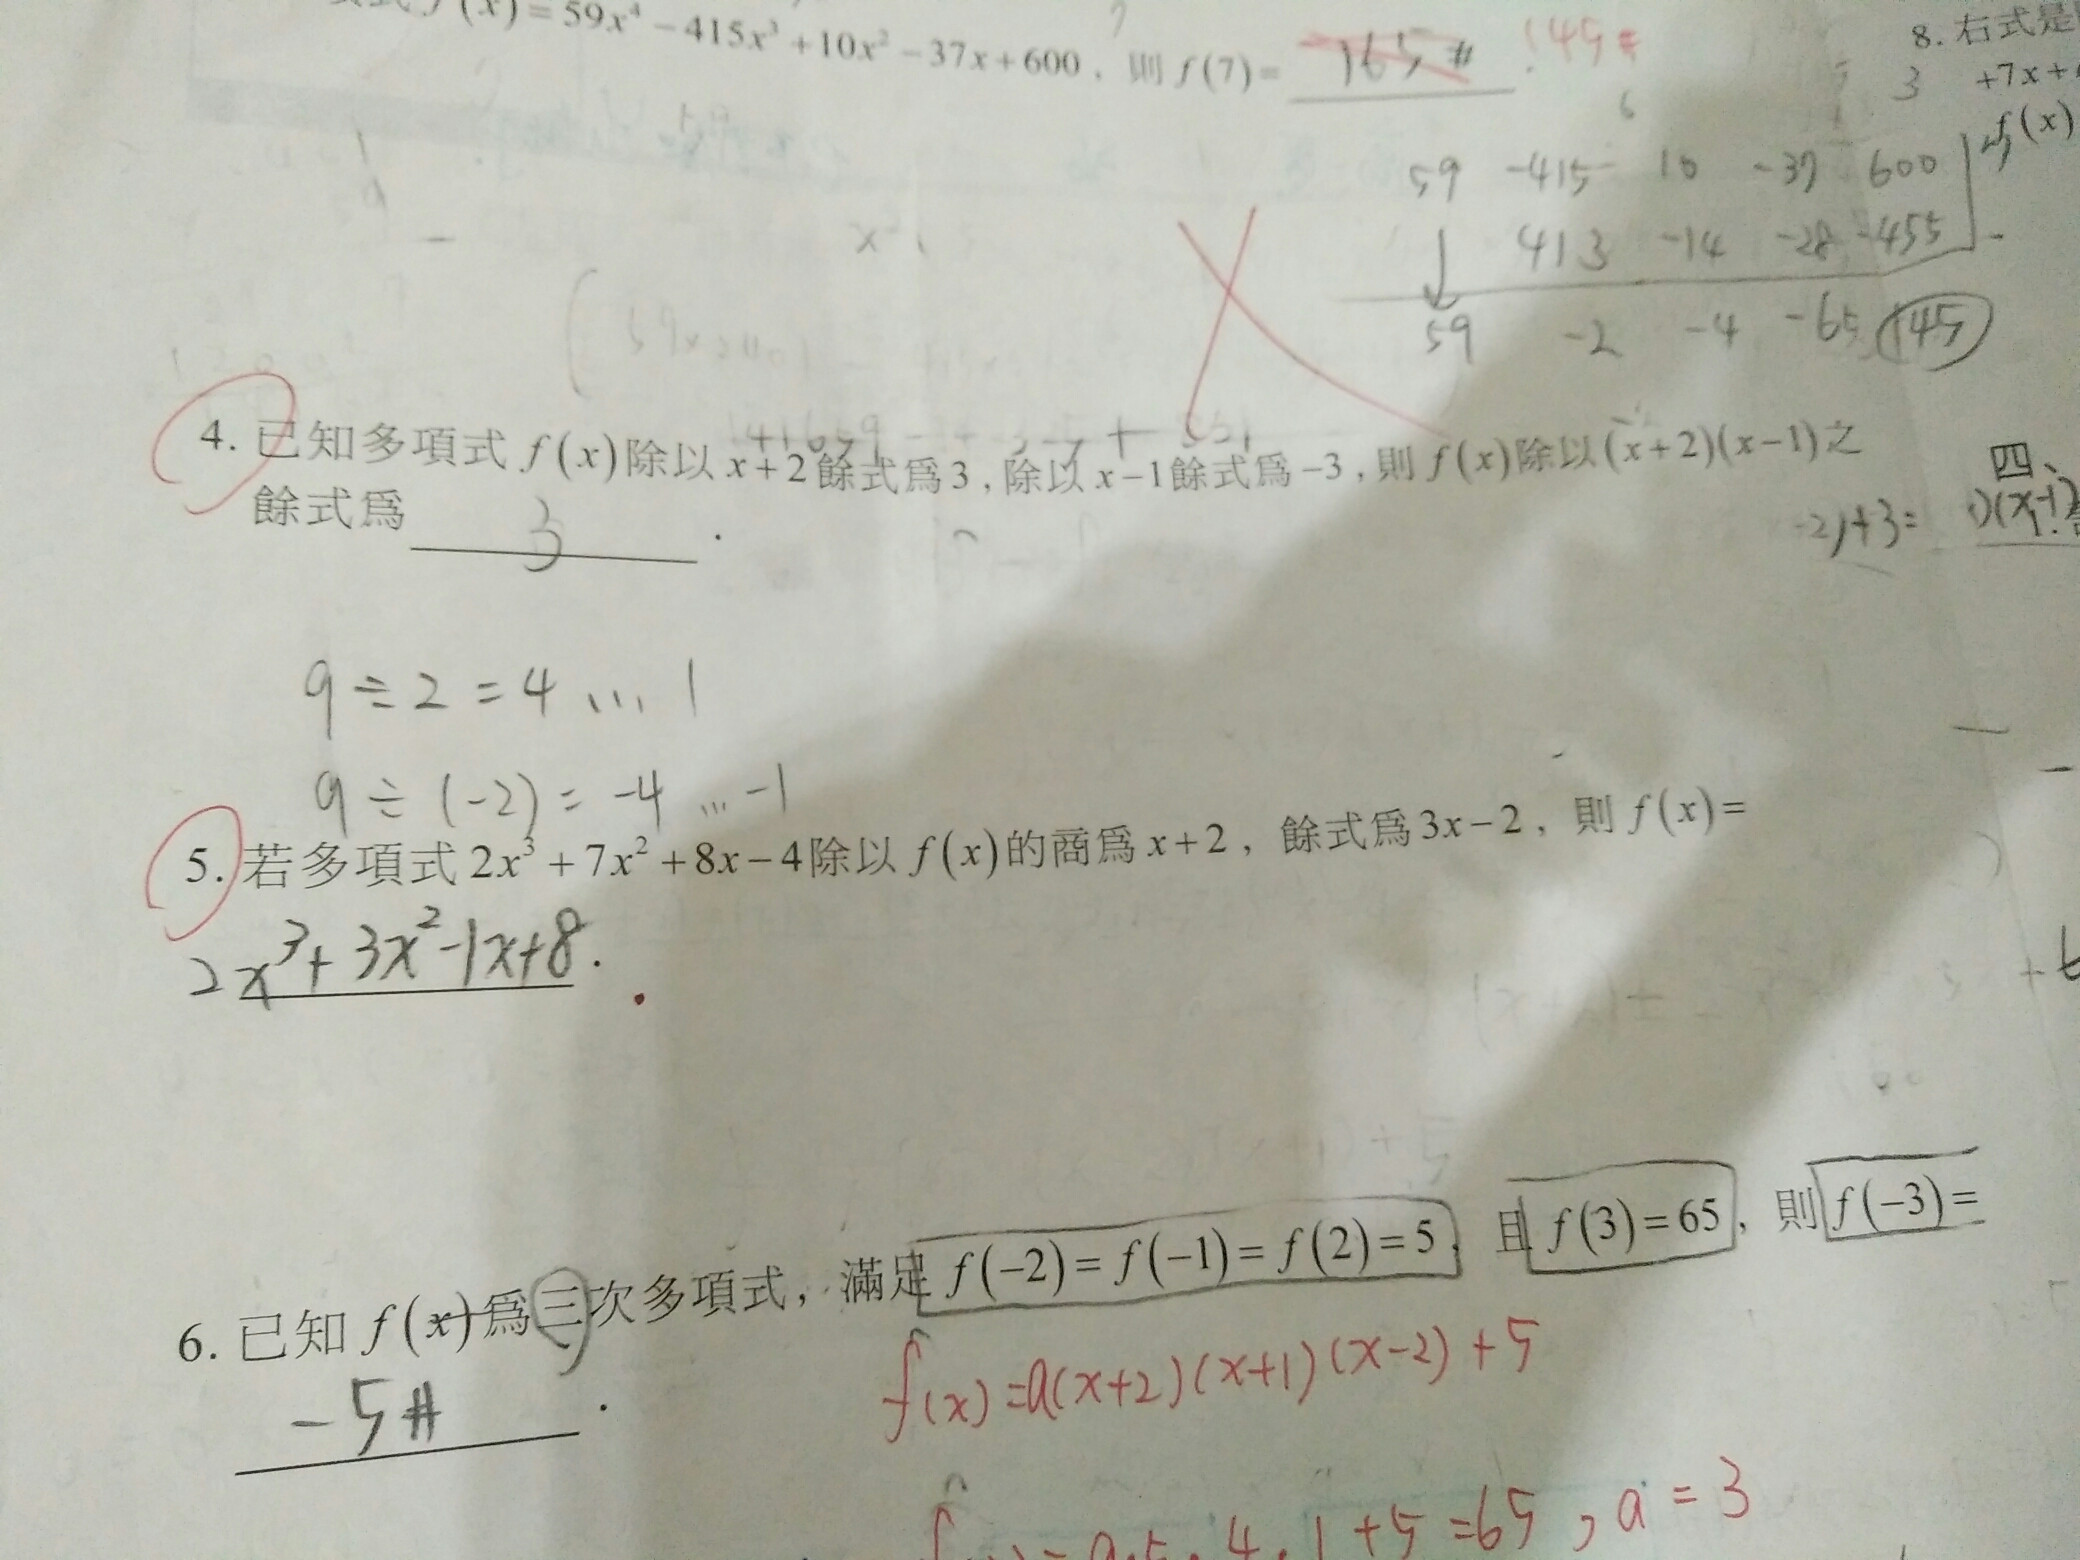 f(x)=59x⁴−415x³+10x²−37x+600，則 f(7)= 165# 145#
8. 右式是
3 +7x+
f(x)
59 -415 10 -37 600
413 -14 -28 -455
59 -2 -4 -65 145
4. 已知多項式 f(x)除以 x+2餘式爲3，除以 x−1餘式爲−3，則 f(x)除以(x+2)(x−1)之
餘式爲 3 .
四、
9÷2=4...1
9÷(-2)=-4...-1
5. 若多項式 2x³+7x²+8x−4除以 f(x)的商爲 x+2，餘式爲3x−2，則 f(x)=
2x³+3x²-1x+8.
6. 已知 f(x)爲三次多項式，滿足 f(−2)=f(−1)=f(2)=5，且 f(3)=65，則 f(−3)=
-5# .
f(x)=a(x+2)(x+1)(x-2)+5
=a·5·4·1+5=65，a=3